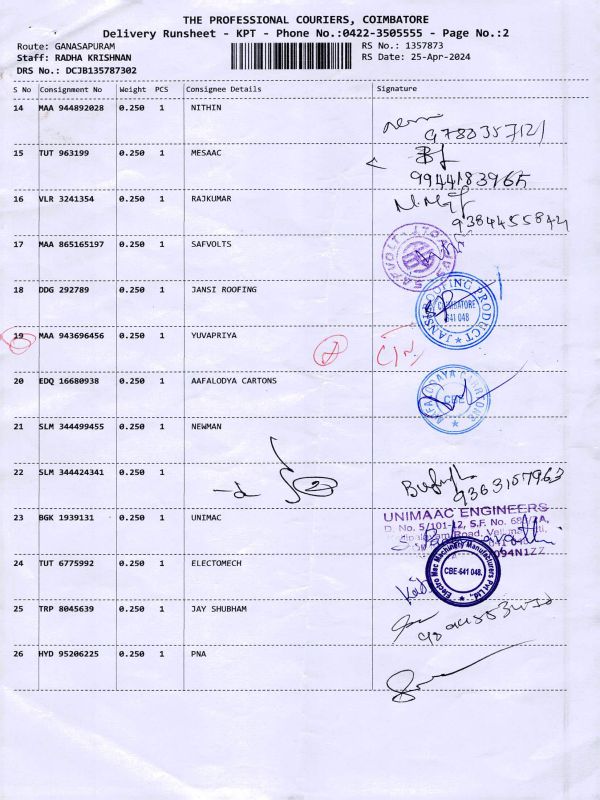 THE PROFESSIONAL COURIERS, COIMBATORE
Delivery Runsheet - KPT - Phone No.:0422-3505555 - Page No.:2
Route: GANASAPURAM RS No.: 1357873
Staff: RADHA KRISHNAN RS Date: 25-Apr-2024
DRS No.: DCJB135787302
S No Consignment No Weight PCS Consignee Details Signature
14 MAA 944892028 0.250 1 NITHIN
9780357121
15 TUT 963199 0.250 1 MESAAC
16 VLR 3241354 0.250 1 RAJKUMAR
9384455844
17 MAA 865165197 0.250 1 SAFVOLTS
18 DDG 292789 0.250 1 JANSI ROOFING
JANSI ROOFING PRODUCT
COIMBATORE
641 048
19 MAA 943696456 0.250 1 YUVAPRIYA
20 EDQ 16680938 0.250 1 AAFALODYA CARTONS
CBE
21 SLM 344499455 0.250 1 NEWMAN
22 SLM 344424341 0.250 1
2
9363157963
23 BGK 1939131 0.250 1 UNIMAC
UNIMAAC ENGINEERS
24 TUT 6775992 0.250 1 ELECTOMECH
Electro Mac Machinery Manufacturers Pvt Ltd.,
CBE-641 048.
25 TRP 8045639 0.250 1 JAY SHUBHAM
26 HYD 95206225 0.250 1 PNA